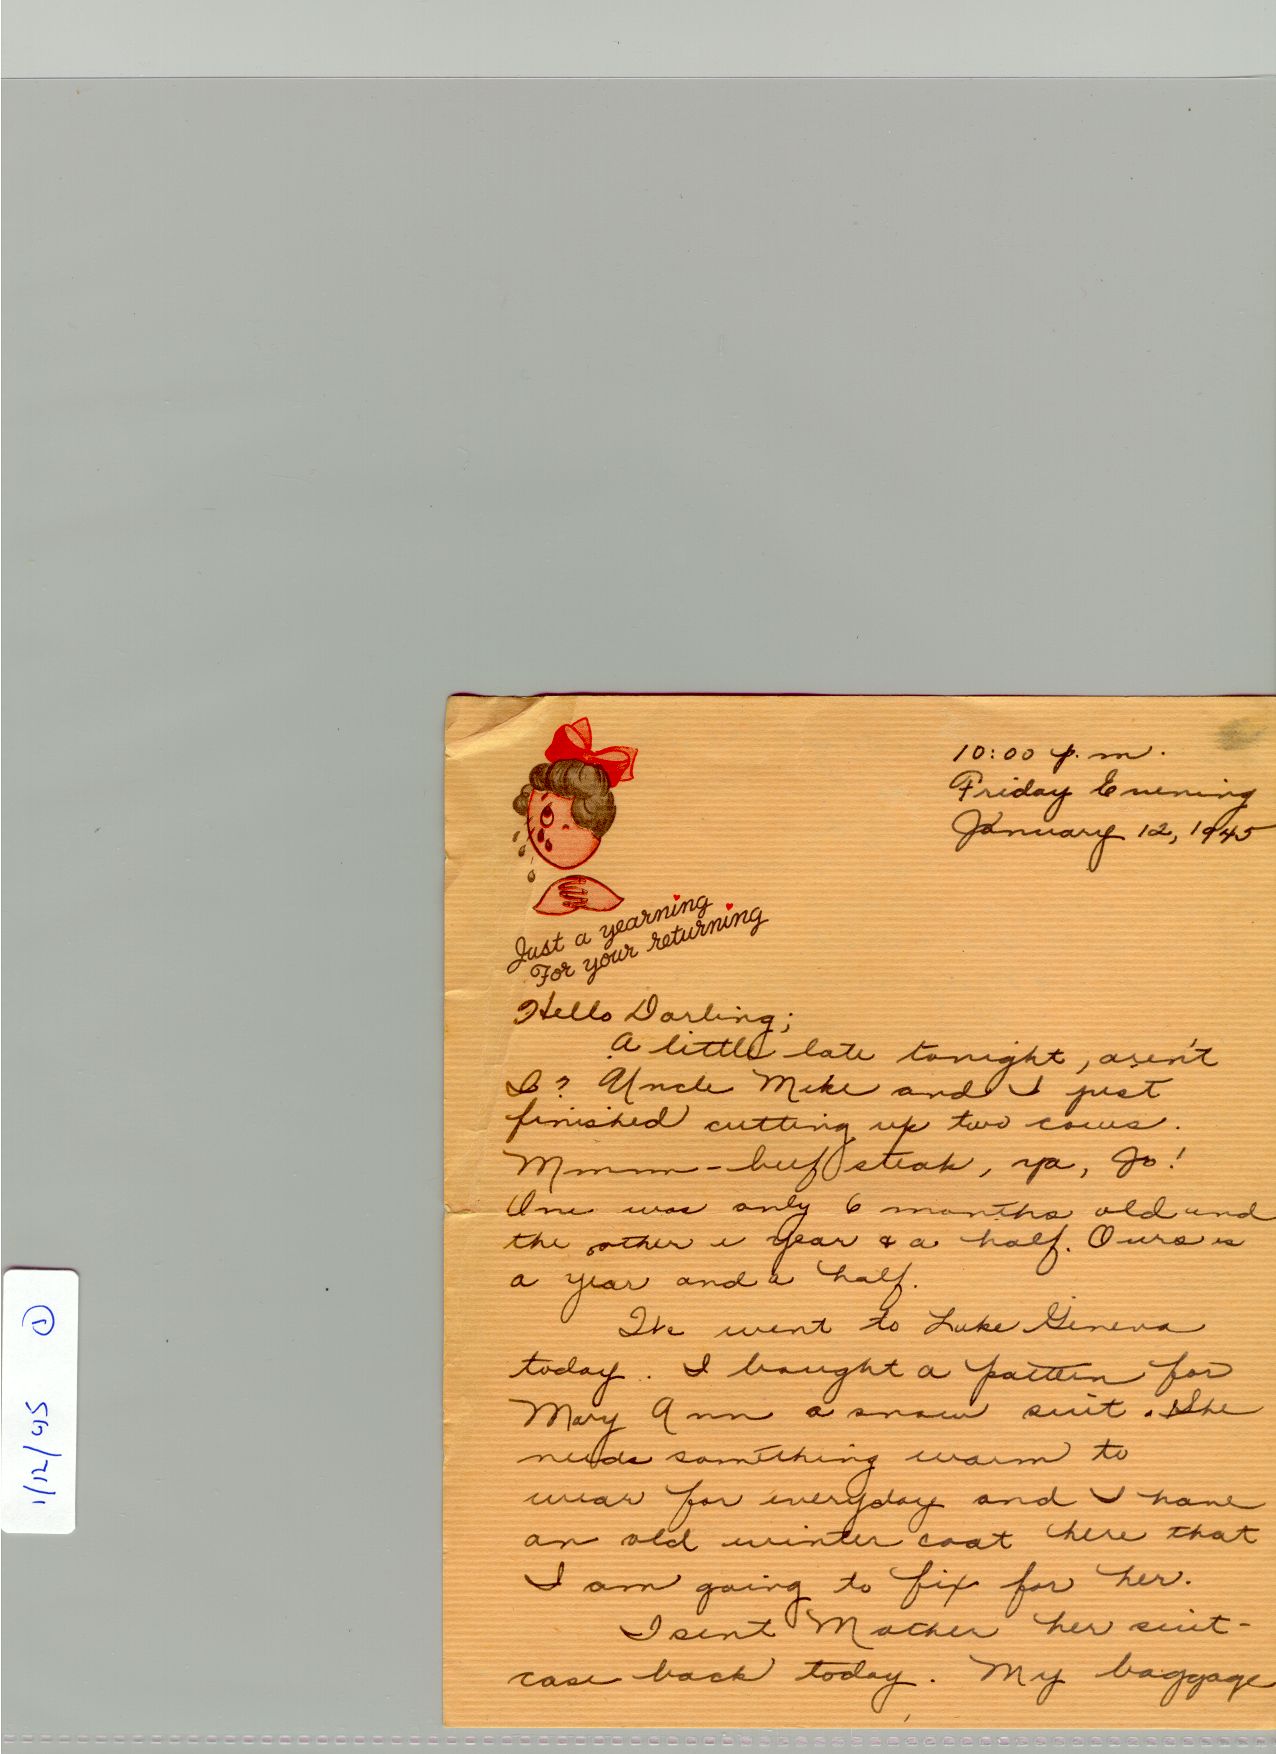 10:00 p.m.
Friday Evening
January 12, 1945
Just a yearning
For your returning
Hello Darling;
A little late tonight, aren't
I? Uncle Mike and I just
finished cutting up two cows.
Mmmm - beef steak, ya, Jo!
One was only 6 months old and
the other a year & a half. Ours is
a year and a half.
We went to Lake Geneva
today. I bought a pattern for
Mary Ann a snow suit. She
needs something warm to
wear for everyday and I have
an old winter coat here that
I am going to fix for her.
I sent Mother her suit-
case back today. My baggage
1/12/45 ①